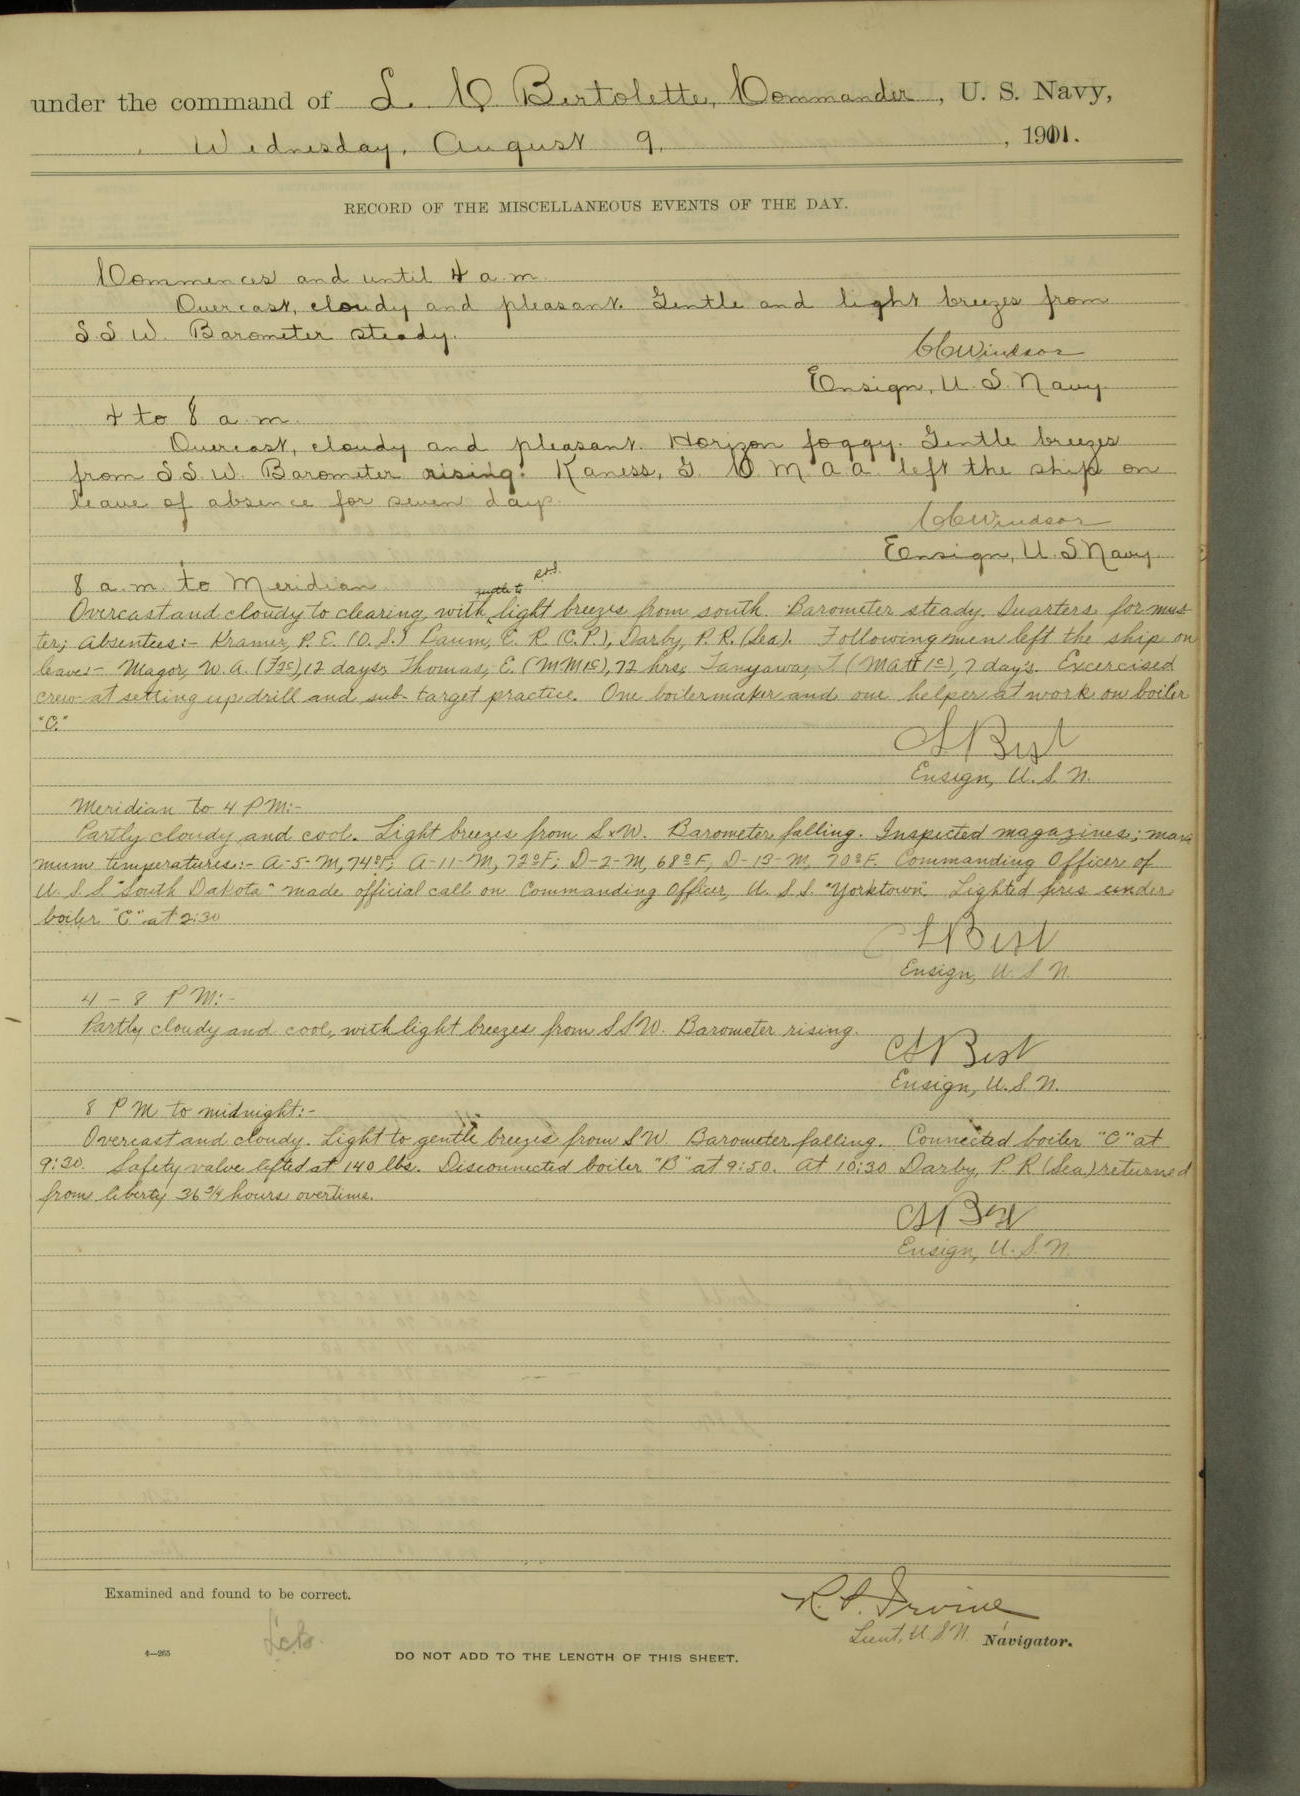 under the command of L. C. Bertolette, Commander, U. S. Navy,
Wednesday, August 9, 1911.
RECORD OF THE MISCELLANEOUS EVENTS OF THE DAY.
Commences and until 4 a.m.
Overcast, cloudy and pleasant. Gentle and light breezes from
S.S.W. Barometer steady.
CCWindsor
Ensign, U.S. Navy.
4 to 8 a.m.
Overcast, cloudy and pleasant. Horizon foggy. Gentle breezes
from S.S.W. Barometer rising. Kaness, G. C.M.a.a. left the ship on
leave of absence for seven days.
CCWindsor
Ensign, U.S Navy.
8 a.m. to Meridian
gentle to
Overcast and cloudy to clearing, with light breezes from south. Barometer steady. Quarters for mus-
ter; absentees:- Kramer, P.E. (O.S.) Baum, E. R. (C.P.), Darby, P.R. (Sea). Following men left the ship on
leave:- Magor, W.A. (F2c), 12 days, Thomas, E. (MM1c), 72 hrs, (Matt 1c), 7 days. Excercised
crew at setting up drill and sub-target practice. One boilermaker and one helper at work on boiler
"C."
Best
Ensign, U.S.N.
Meridian to 4 PM:-
Partly cloudy and cool. Light breezes from SxW. Barometer falling. Inspected magazines; maxi
mum temperatures:- A-5-M, 74°F; A-11-M, 72°F; D-2-M, 68°F, D-13-M, 70°F. Commanding Officer of
U.S.S "South Dakota" made official call on Commanding Officer, U.S.S. "Yorktown". Lighted fires under
boiler "C" at 2:30
Best
Ensign, U.S.N.
4 - 8 PM:-
Partly cloudy and cool, with light breezes from SSW. Barometer rising.
Best
Ensign, U.S.N.
8 PM to midnight:-
Overcast and cloudy. Light to gentle breezes from SW. Barometer falling. Connected boiler "C" at
9:30. Safety valve lifted at 140 lbs. Disconnected boiler "B" at 9:50. At 10:30 Darby, P.R (Sea) returned
from liberty 36 3/4 hours overtime.
Best
Ensign, U.S.N.
Examined and found to be correct.
Irvine
Lieut, U.S.N. Navigator.
4—265
DO NOT ADD TO THE LENGTH OF THIS SHEET.